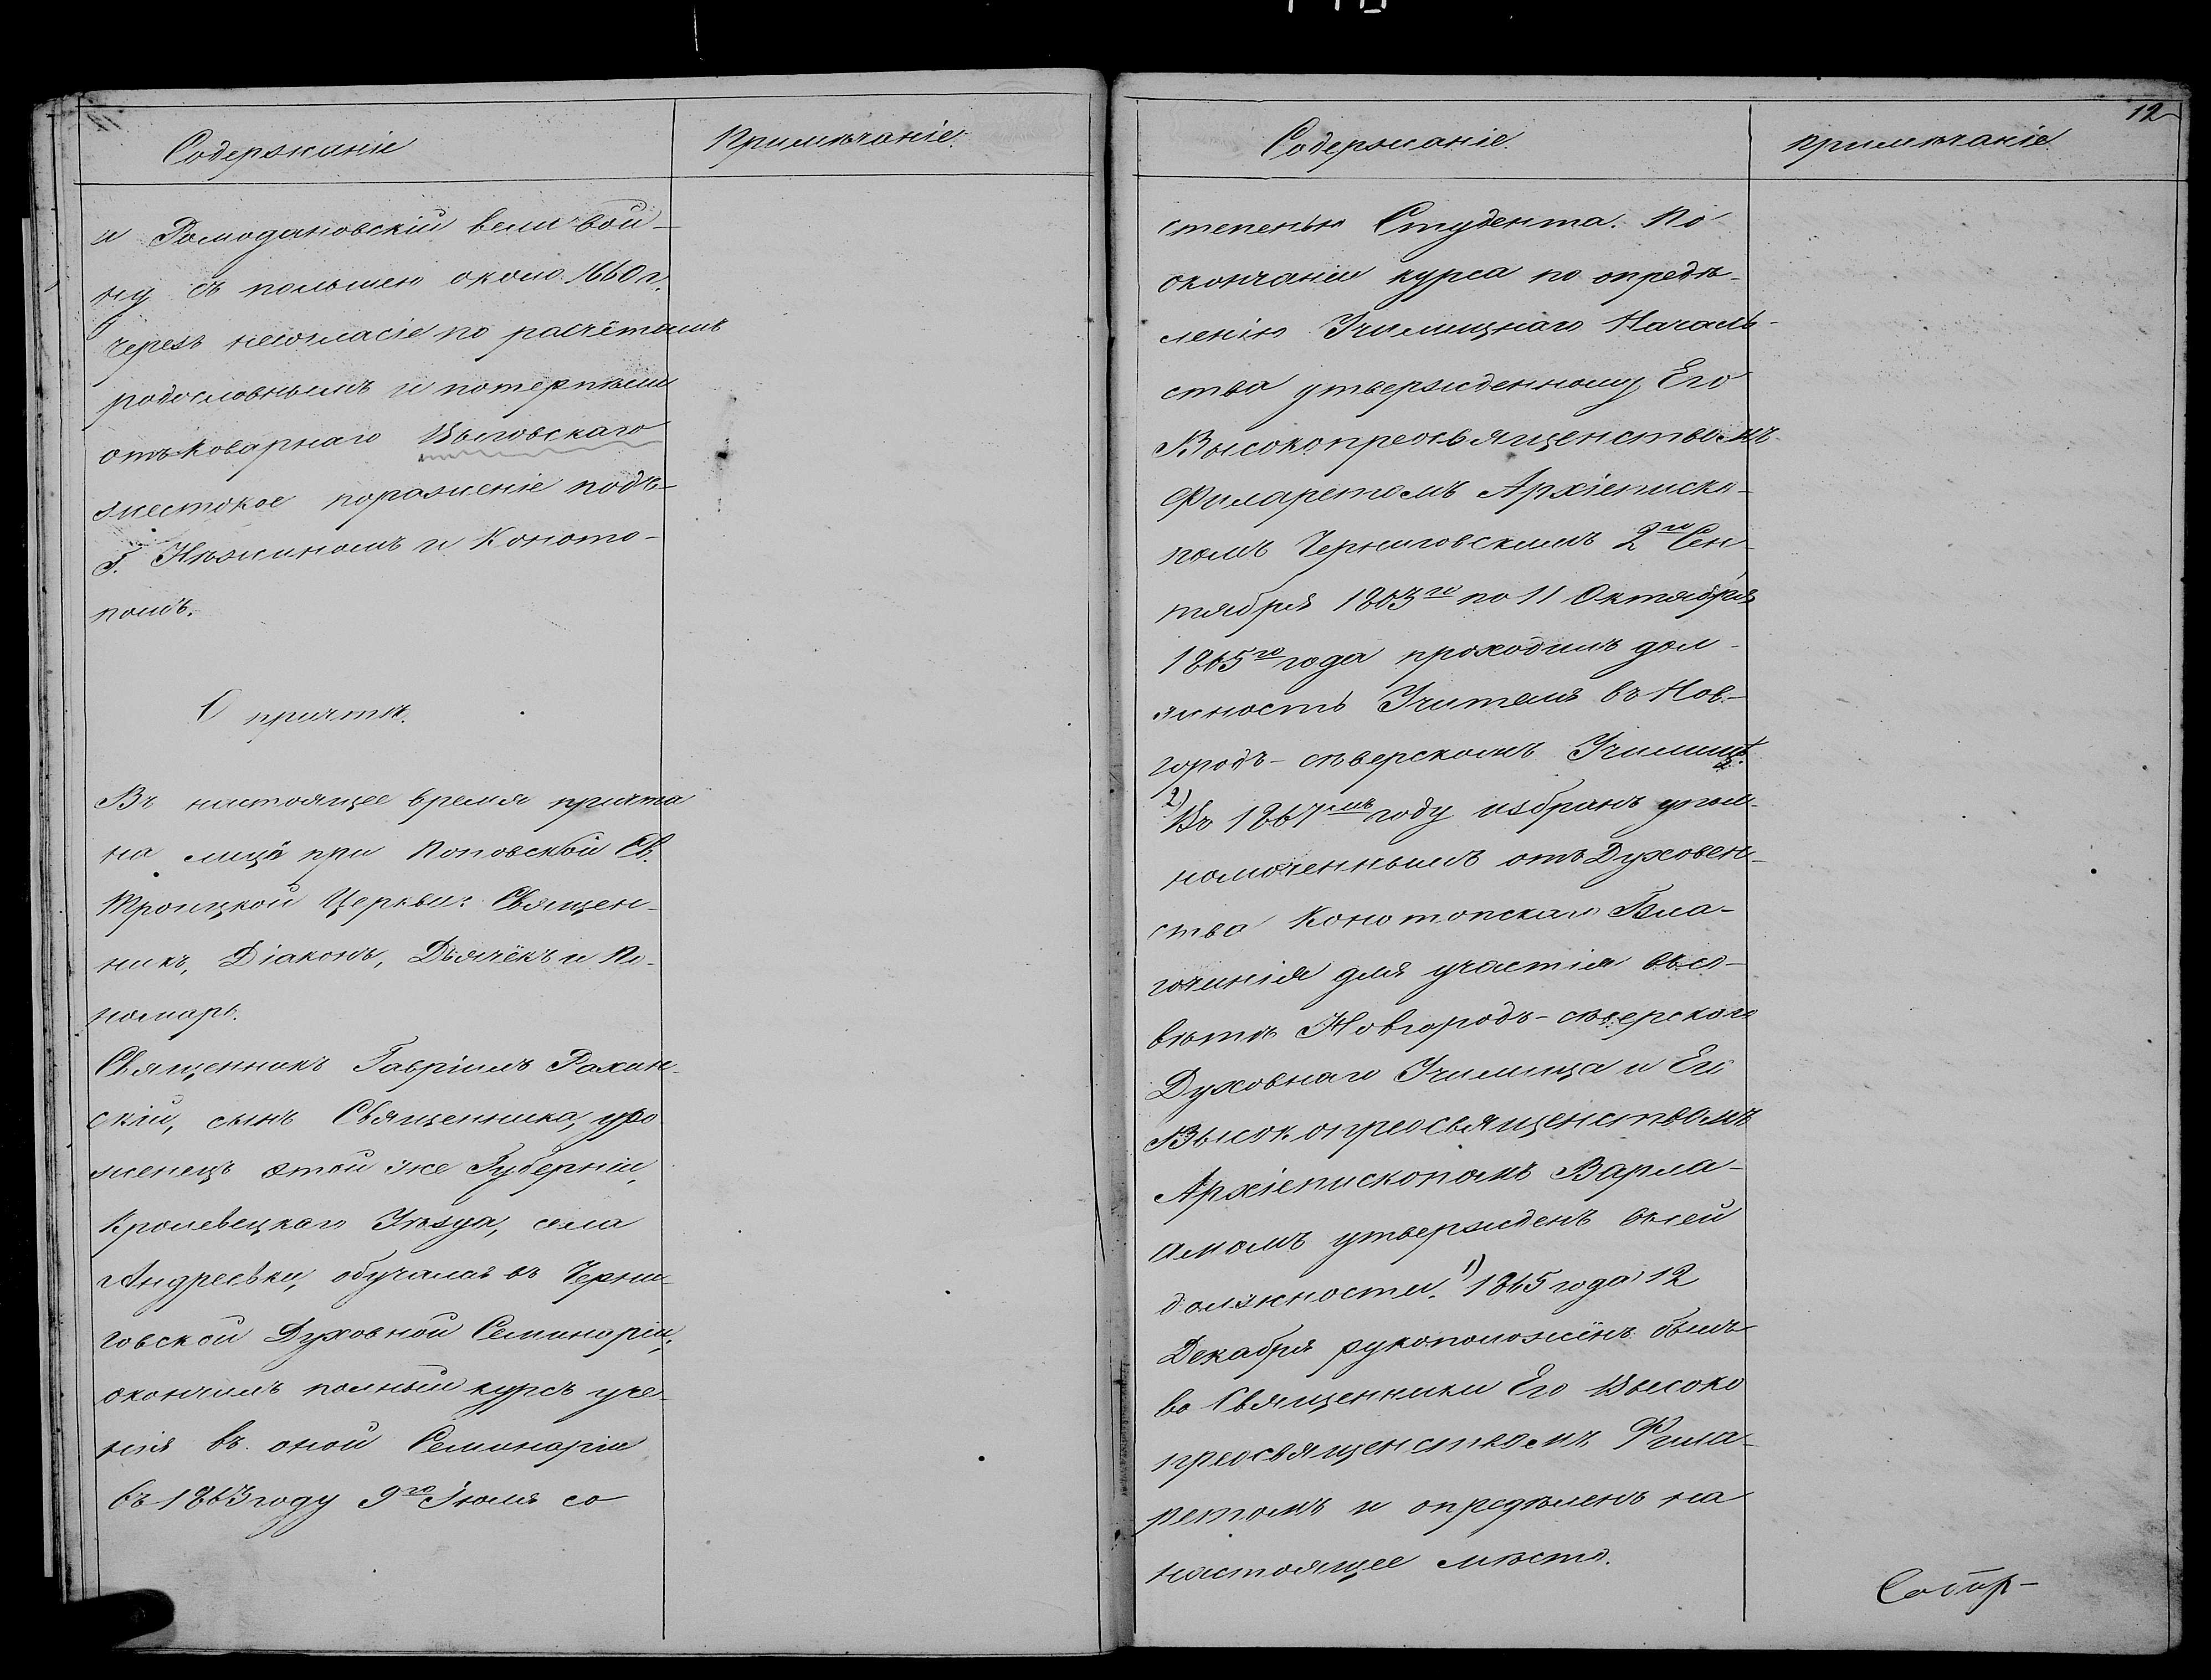 Содержаніе
Примѣчаніе.
и Ромодановскій вели вой-
ну съ польшею около 1660 г.
Черезъ несогласіе по расчётамъ
родословнымъ и потерпѣли
отъ коварнаго Выговскаго
жестокое пораженіе подъ-
г. Нѣжиномъ и Коното-
помъ.
О причтѣ.
Въ настоящее время причта
на лицо при Поповской Св.
Троицкой Церкви: Священ-
никъ, Діаконъ, Дьячёкъ и По-
номарь.
Священникъ Гавріилъ Рахин-
скій, сынъ Священника, уро
женецъ этой же Губерніи,
Кролевецкаго Уѣзда, села
Андреевки, обучался въ Черни-
говской Духовной Семинаріи,
окончилъ полный курсъ уче-
нія въ оной Семинаріи
въ 1863 году 9го Іюля со
12
Содержаніе.
примѣчаніе.
степенью Студента. По
окончаніи курса по опредѣ-
ленію Училищнаго Началь-
ства утвержденному Его
Высокопреосвященствомъ
Филаретомъ Архіеписко-
помъ Черниговскимъ 2го Сен-
тября 1863го по 11 Октября
1865го года проходилъ дол-
жность Учителя въ Нов-
городъ-сѣверскомъ Училищѣ.
2) Въ 1867мъ году избранъ упол-
номоченнымъ отъ Духовен-
ства Конотопскаго Бла-
гочинія для участія въ со-
вѣтѣ Новгородъ-сѣверского
Духовнаго Училища и Его
Высокопреосвященствомъ
Архіепископомъ Варла-
амомъ утвержденъ въ сей
должности. 1) 1865 года 12
Декабря рукоположёнъ былъ
во Священники Его Высоко
преосвященствомъ Фила-
ретомъ и опредѣленъ на
настоящее мѣсто.